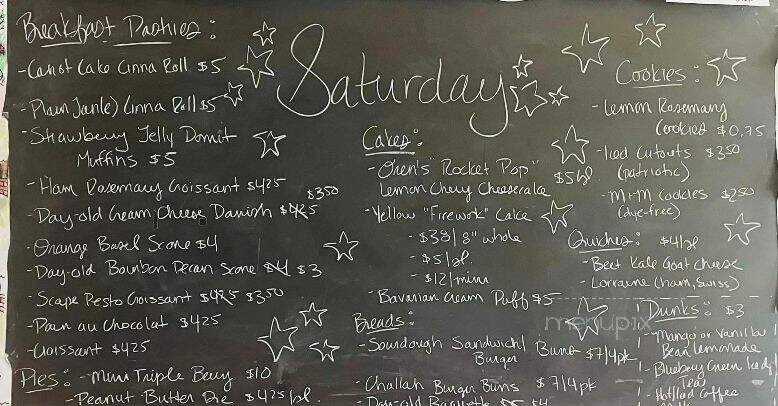 Saturday
Breakfast Pastries:
-Carrot Cake Cinna Roll $5
-Plain Jan(e) Cinna Roll $5
-Strawberry Jelly Donut
Muffins $5
-Ham Rosemary Croissant $4.25
-Day-old Cream Cheese Danish $4.25 $3.50
-Orange Basil Scone $4
-Day-old Bourbon Pecan Scone $4 $3
-Scape Pesto Croissant $4.25 $3.50
-Pain au Chocolat $4.25
-Croissant $4.25
Pies: -Mini Triple Berry $10
-Peanut Butter Pie $4.25/sl.
Cakes:
-Oren's "Rocket Pop"
Lemon Cherry Cheesecake $5/sl.
-Yellow "Firework" Cake
-$38/8" whole
-$5/sl.
-$12/mini
-Bavarian Cream Puff $5
Breads:
-Sourdough Sandwich/
Burger Buns $7/4pk
-Challah Burger Buns $7/4pk
-Day-old Baguette $4
Cookies:
-Lemon Rosemary
Cookies $0.75
-Iced Cutouts $3.50
(patriotic)
-M+M Cookies $2.50
(dye-free)
Quiches: $4/sl
-Beet Kale Goat Cheese
-Lorraine (ham, swiss)
Drinks: $3
-Mango or Vanilla
Bean Lemonade
-Blueberry Green Iced
Tea
-Hot/Iced Coffee
menupix